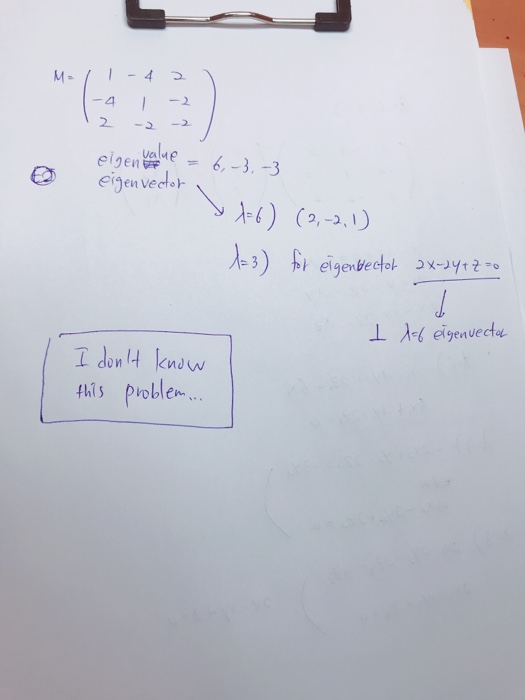 M= ( 1 -4 2
-4 1 -2
2 -2 -2 )
eigenvalue = 6, -3, -3
eigenvector
λ=6) (2, -2, 1)
λ=3) for eigenvector 2x-2y+z=0
⊥ λ=6 eigenvector
I don't know
this problem...